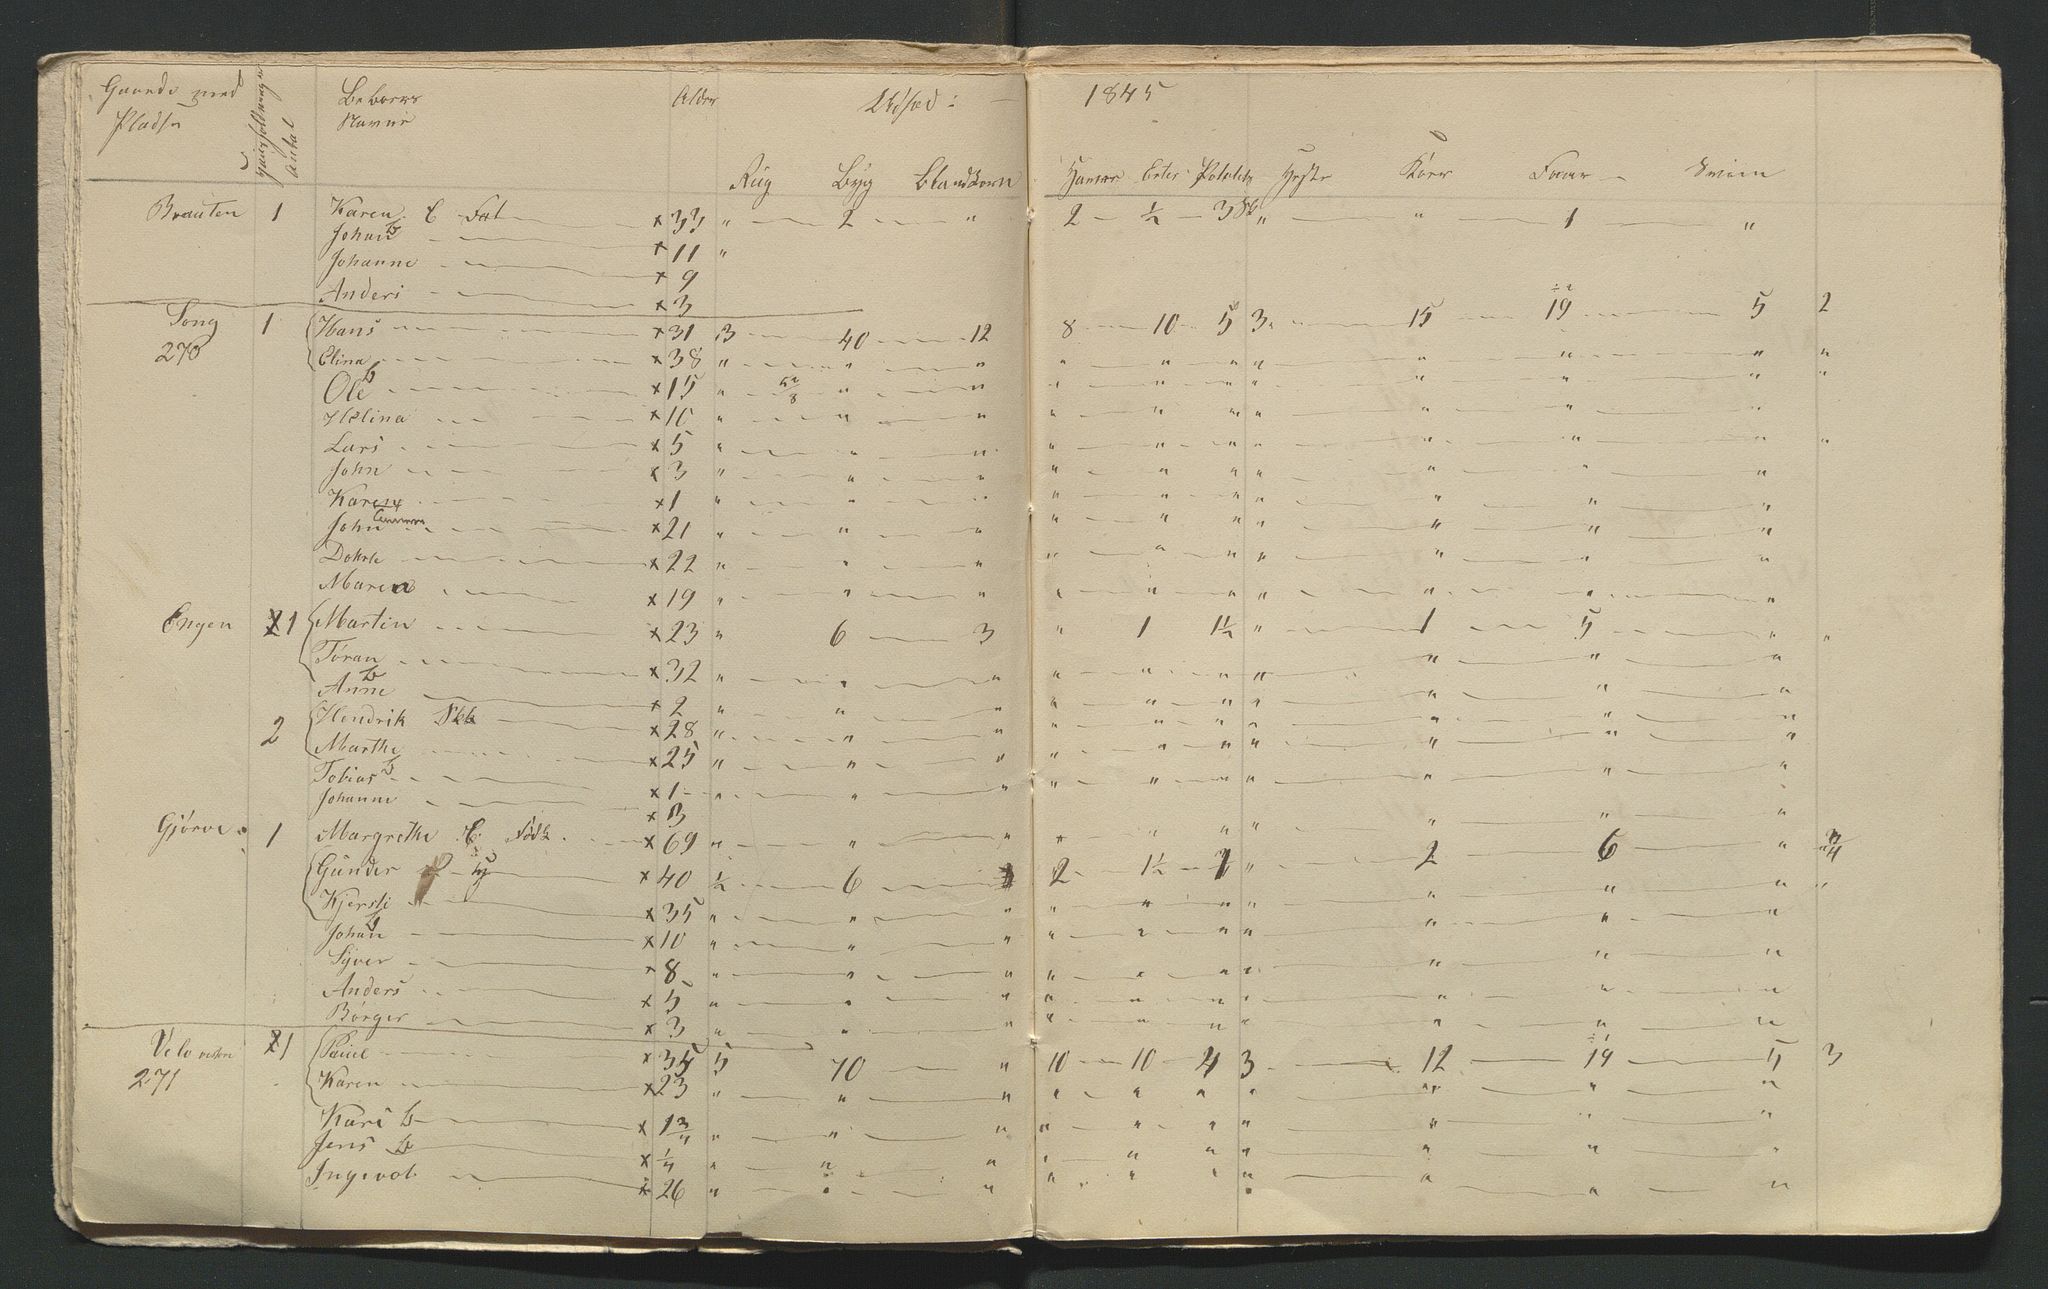 Gaarde med Pladse Huusholdninger Antal Beboeres Navne Alder Udsæd: 1845
Rug Byg Blandkorn Havre Erter Poteter Heste Kører Faar Sviin
Brauten 1 Karen E Fat x 33 " 2 " 2 ½ 3 " " 1 "
Johan x 11 "
Johanne x 9
Anders x 3
Song 1 Hans x 31 3 40 12 8 10 5 3 15 19 5 2
270 Elina x 38 " " " " " " " " " " "
Ole x 15 " " " " " " " " " " "
Helina x 10 " " " " " " " " " "
Lars x 5 " " " " " " " " " " "
John x 3 " " " " " " " " " "
Karen x 1 " " " " " " " " " "
John x 21 " " " " " " " " " "
Dorte x 22 " " " " " " " " " "
Maren x 19 " " " " " " " " " "
Engen 1 Martin x 23 " 6 3 " 1 1½ " 1 5 " "
Tøran x 32 " " " " " " " " " "
Anne x 2 " " " " " " " " " "
2 Hendrik x 28 " " " " " " " " " "
Marthe x 25 " " " " " " " " " "
Tobias x 1 " " " " " " " " " "
Johanne x 3
Gjørve 1 Margrethe E Født x 69 " " " " " " " " " "
Gunder x 40 ½ 6 2 1½ 1 " 2 6 " 4
Kjersti x 35 " " " " " " " " " " "
Johan x 10 " " " " " " " " " "
Syver x 8 " " " " " " " " " "
Anders x 5 " " " " " " " " " "
Børger x 3 " " " " " " " " " "
Velo vestre 1 x 35 5 70 " 10 10 4 3 12 19 5 3
271 Karen x 23 " " " " " " " " " "
Kari x 13 " " " " " " " " " "
Jens x ¼ " " " " " " " " " "
Ingevol x 26 " " " " " " " " " "